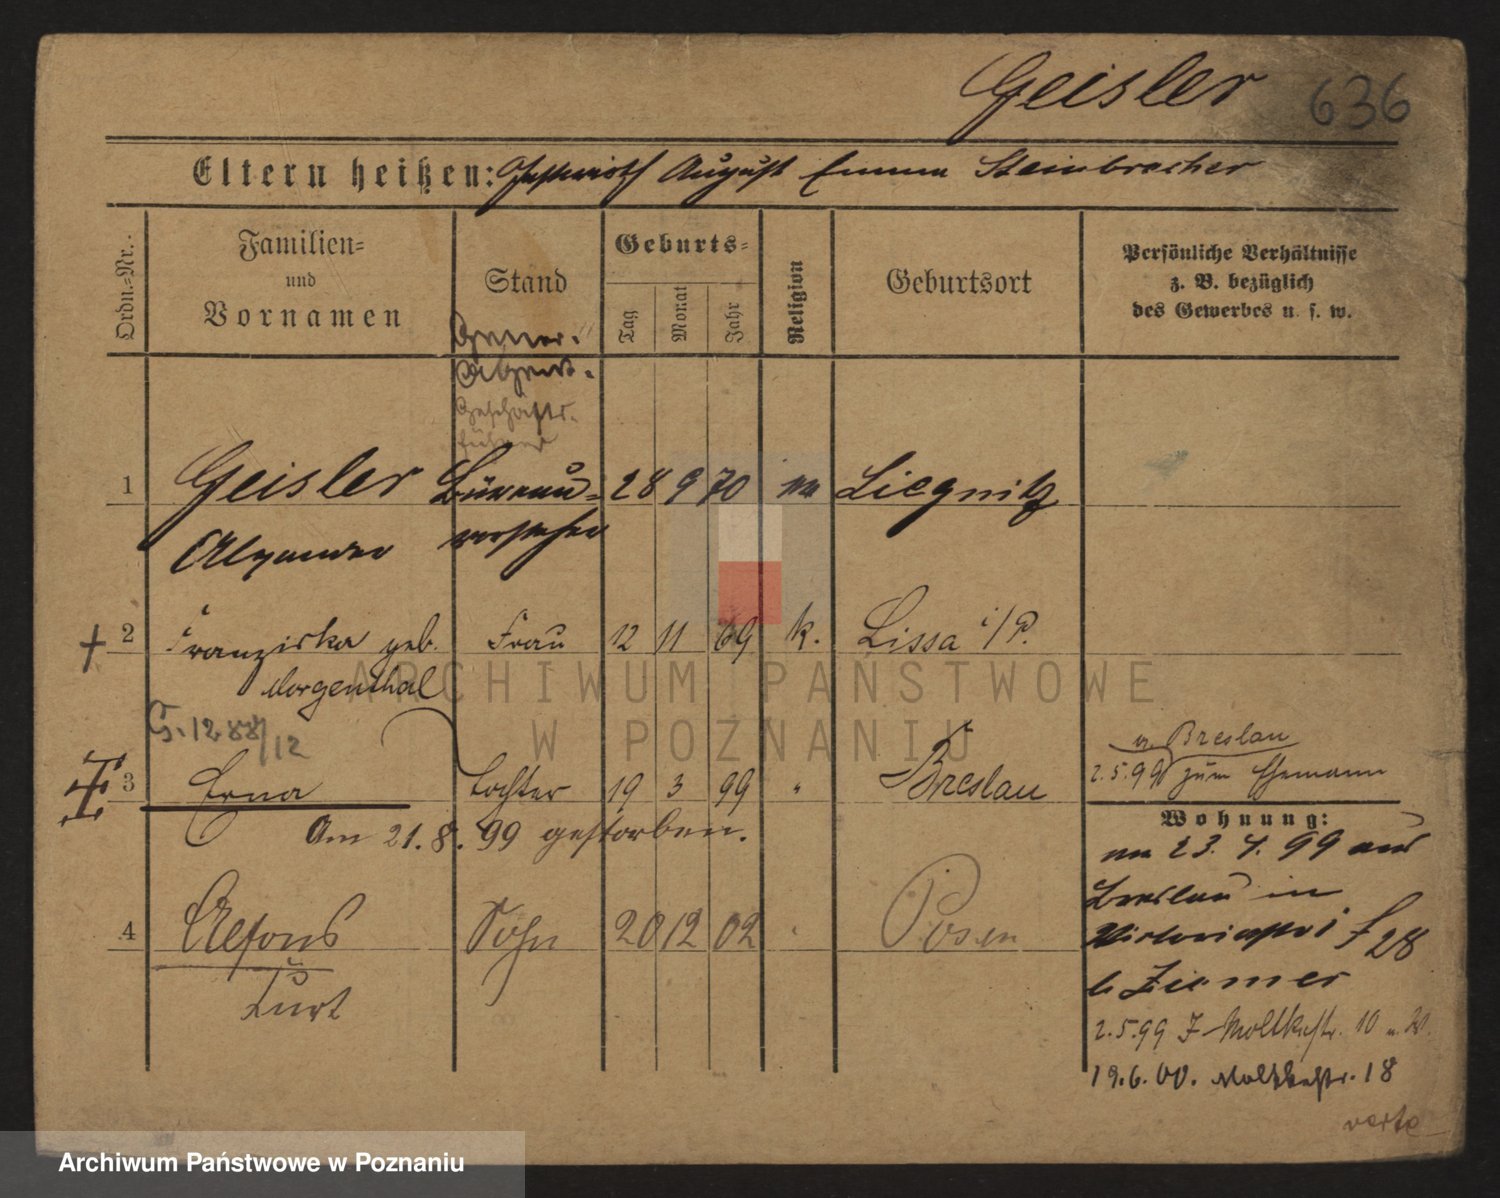 Geisler 636
Eltern heißen: Gastwirth August Emma Steinbrecher
Ordn.=Nr.
Familien=
und
Vornamen
Stand
Geburts=
Tag
Monat
Jahr
Religion
Geburtsort
Persönliche Verhältnisse
z. B. bezüglich
des Gewerbes u. s. w.
Gener.
Agent.
Geschäfts-
führer
1 Geisler Bureau= 28 9 70 Liegnitz
Alexander vorsteher
2 Franziska geb. Frau 12 11 69 k. Lissa i/P.
Morgenthal
G. 12.88/12
3 Erna Tochter 19 3 99 " Breslau
v. Breslau
2.5.99 zum Ehemann
Am 21.8.99 gestorben.
Wohnung:
23.4.99 aus
Breslau in
28
b Ziemer
4 Alfons Sohn 20 12 02 Posen
Kurt
2.5.99 Moltkestr. 10
19.6.00. Moltkestr. 18
verte
ARCHIWUM PAŃSTWOWE
W POZNANIU
Archiwum Państwowe w Poznaniu